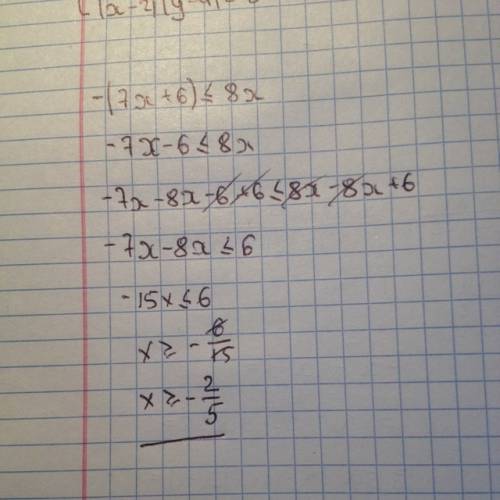 -(7x+6)≤8x
-7x-6≤8x
-7x-8x-6+6≤8x-8x+6
-7x-8x≤6
-15x≤6
x≥-6/15
x≥-2/5